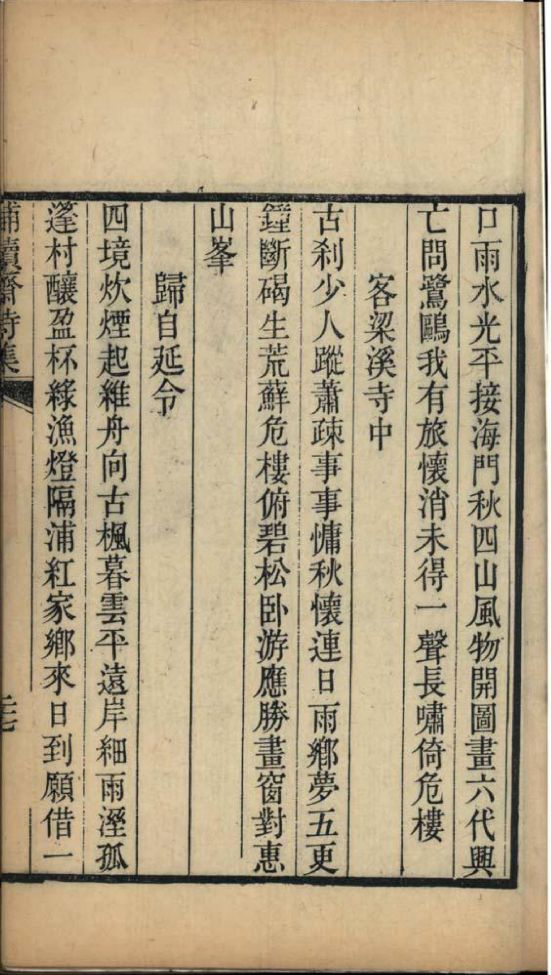 口雨水光平接海門秋四山風物開圖畫六代興
亡問鷺鷗我有旅懷消未得一聲長嘯倚危樓
客梁溪寺中
古刹少人蹤蕭疎事事慵秋懷連日雨鄉夢五更
鐘斷碣生荒蘚危樓俯碧松卧游應勝畫窗對惠
山峯
歸自延令
四境炊煙起維舟向古楓暮雲平遠岸細雨溼孤
篷村釀盈杯綠漁燈隔浦紅家鄉來日到願借一
補讀齋詩集